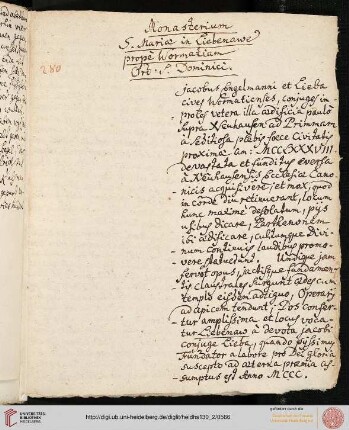 Monasterium
S. Mariæ in Liebenawe
prope Wormatiam
Ord. S. Dominici.
280
Jacobus Engelmanni et Lieba
cives Wormatienses, conjuges in-
proles vetera illa ædificia paulo
supra Neuhausen ad Primmam
a seditiosa plebis fœce Civitatis
proximæ an: MCCXXXVIII.
devastata et funditus eversa
a Neuhausensis Ecclesiæ Cano-
nicis acquisivere; et mox, quod
in corde diu retinuerant, locum
hunc maxime desolatum, pijs
usibus dicare, Parthenonem
ibi ædificare, cultumque Divi-
num continuis laudibus promo-
vere statuerunt. Undique jam
fervet opus, jactisque fundamen-
tis claustrales surgunt ædes cum
templo eisdem adtiguo, Operarij
ad apicem tendunt; Dos confer-
tur amplissima et locus voca-
tur Liebenaw a devota Jacobi
conjuge Lieba, quando pijssimus
Fundator a labore pro Dei gloria
suscepto ad æterna præmia as-
sumptus est Anno MCCC.
UNIVERSITÄTS-
BIBLIOTHEK
HEIDELBERG
http://digi.ub.uni-heidelberg.de/diglit/heidhs139_2/0566
gefördert durch die